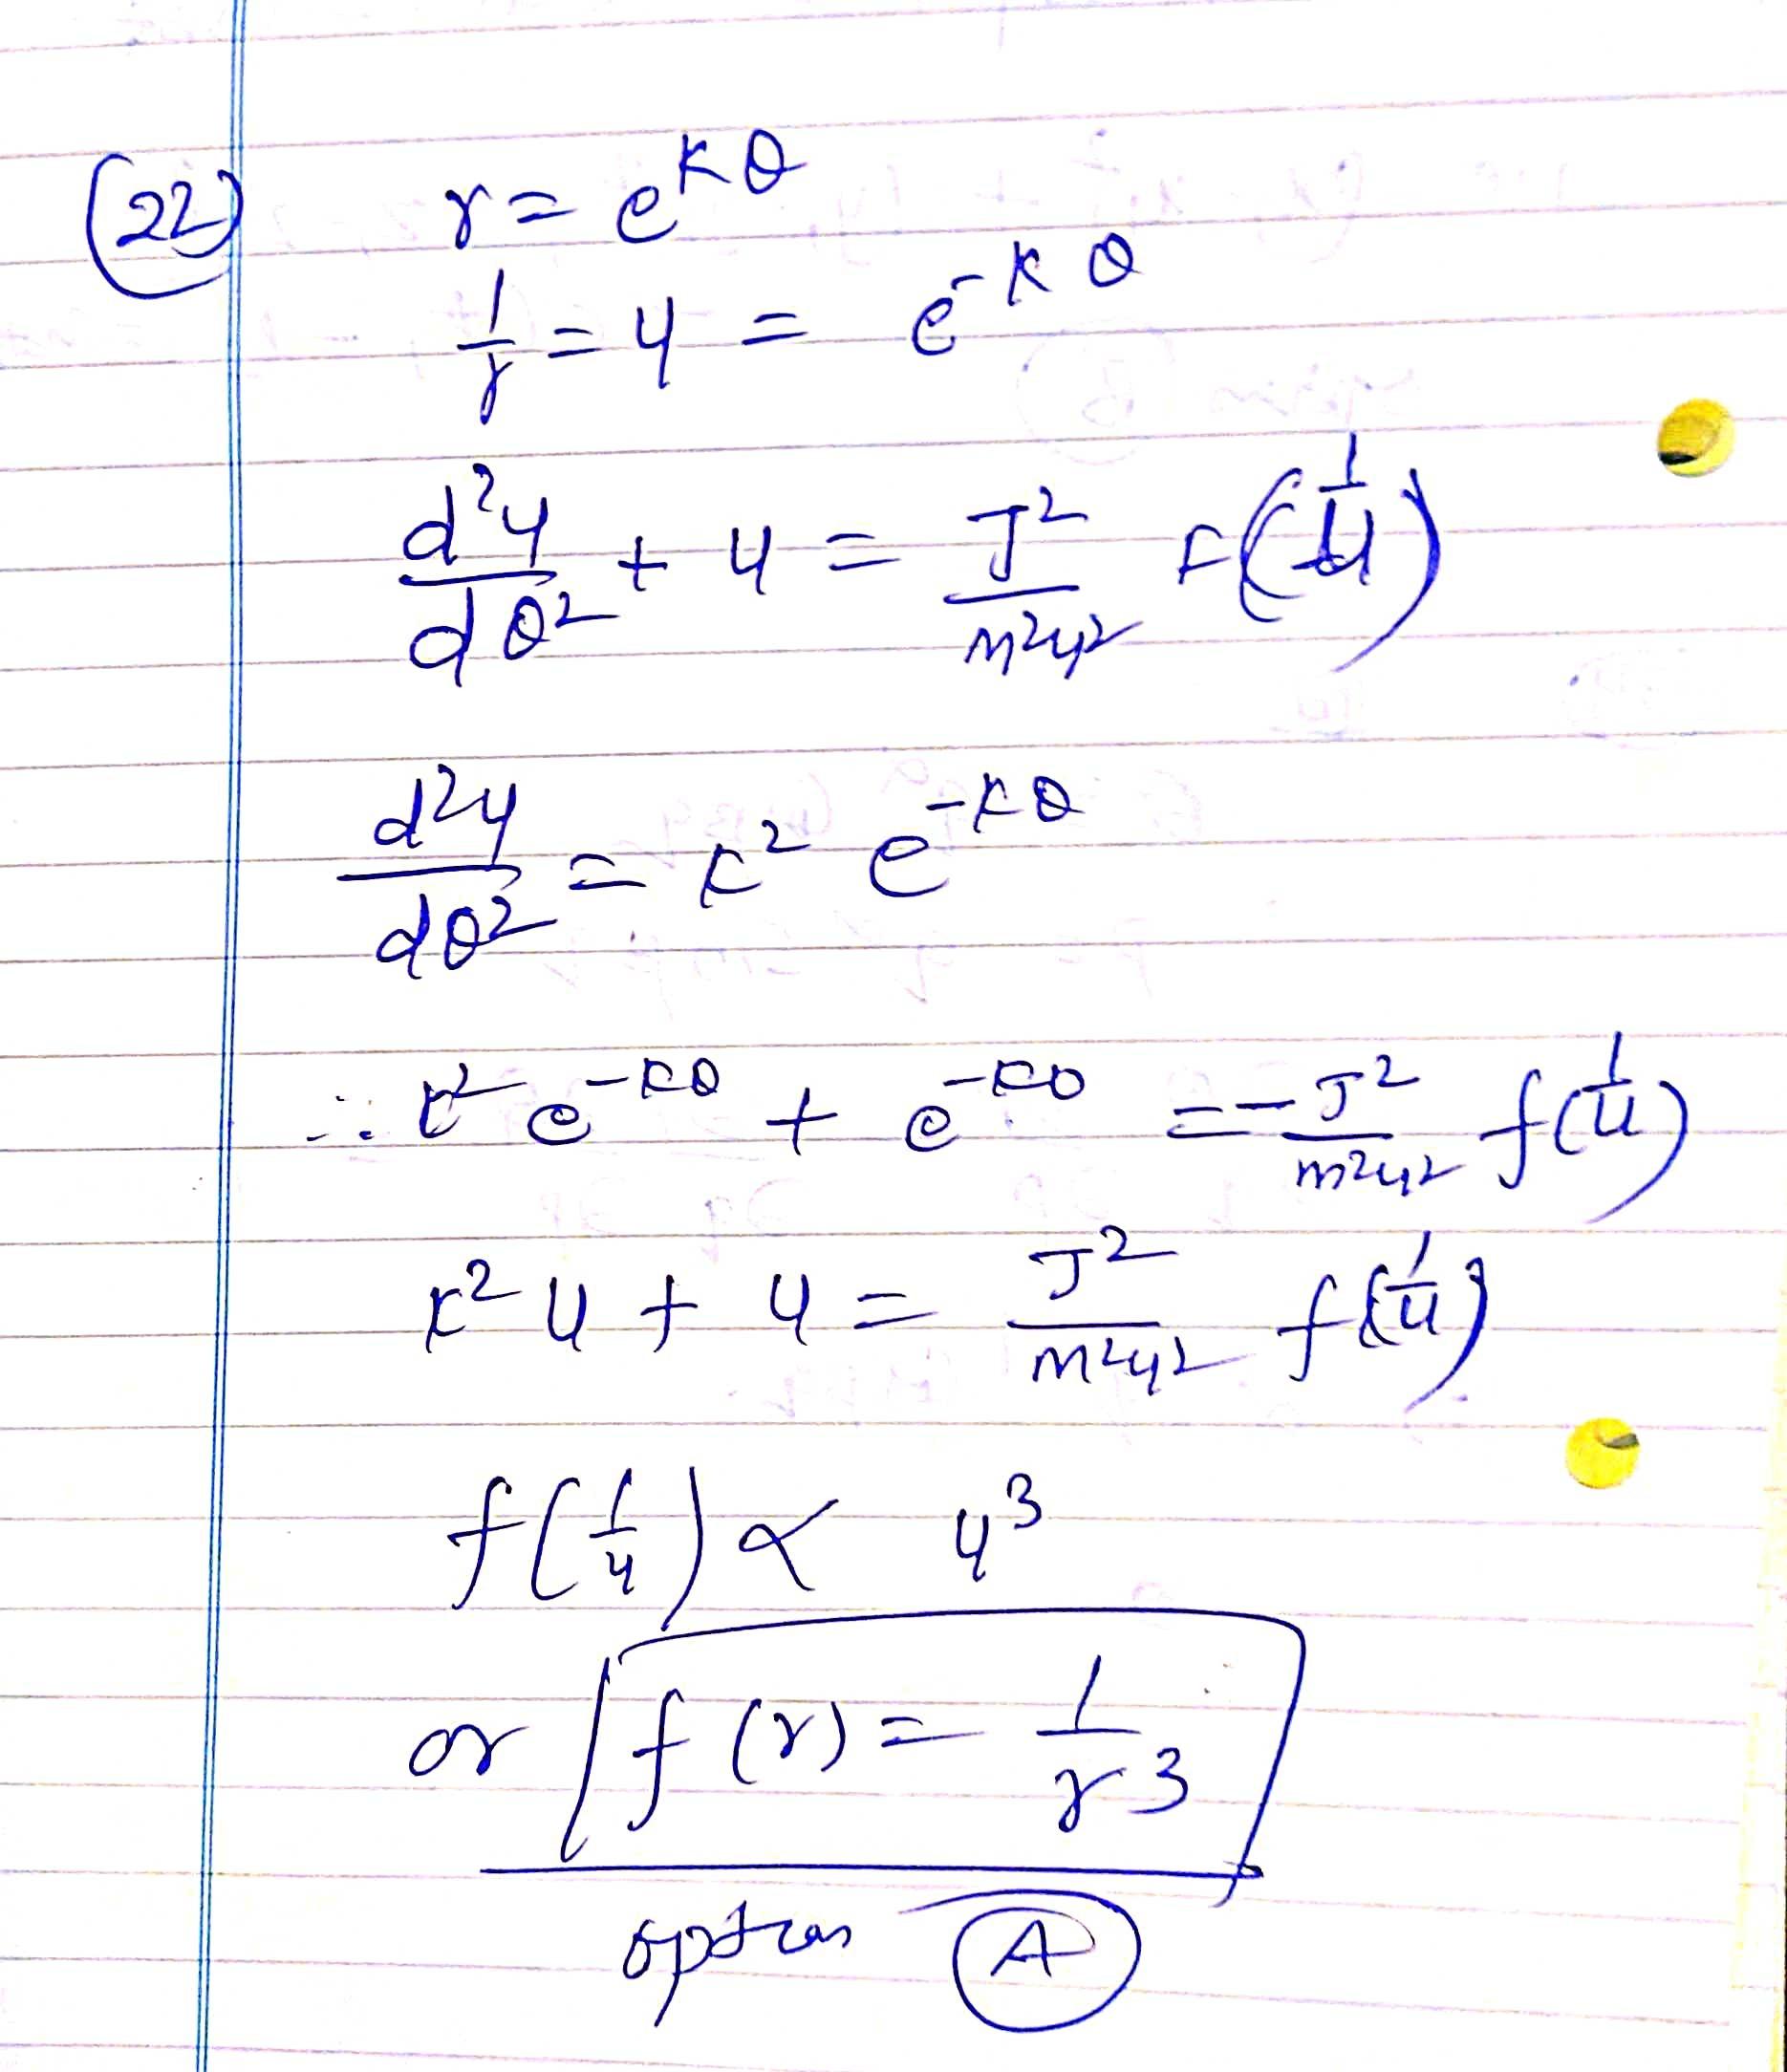 (22) r = e^{kθ}
1/r = u = e^{-kθ}
d²u/dθ² + u = J²/m²u² F(1/u)
d²u/dθ² = k² e^{-kθ}
∴ k² e^{-kθ} + e^{-kθ} = -J²/m²u² f(1/u)
k² u + u = J²/m²u² f(1/u)
f(1/u) ∝ u³
or f(r) = 1/r³
option A